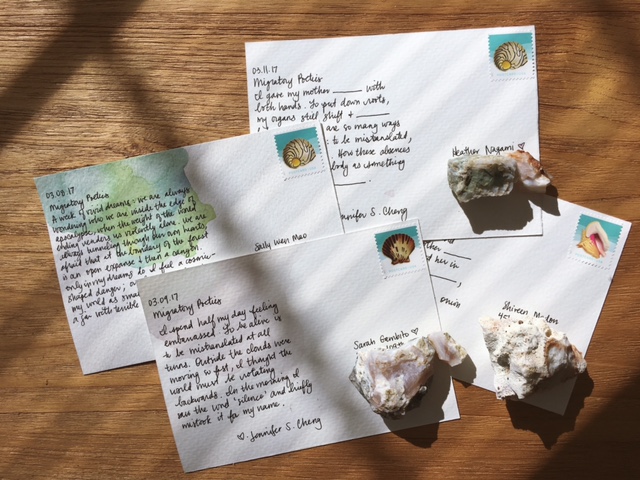 03.11.17
Migratory Poetics
I gave my mother ____ with
both hands. To put down roots,
my organs still shift + ____
are so many ways
to be mistranslated,
How these absences
body as something
____.
Jennifer S. Cheng
Heather Nagami ♡
03.08.17
Migratory Poetics
A week of vivid dreams: we are always
wondering who we are inside the edge of
apocalypse, when the weight of the world
ending renders us violently alone. We are
always tunneling through our own hands,
afraid that at the boundary of the forest
is an open expanse + than a canyon.
only in my dreams do I feel a cosmic-
shaped danger;
my world as small
a jar with terrible
Sally Wen Mao
03.09.17
Migratory Poetics
I spend half my day feeling
embarrassed. To be alive is
to be mistranslated at all
turns. Outside the clouds were
moving so fast, I thought the
world must be rotating
backwards. In the morning I
saw the word 'silence' and briefly
mistook it for my name.
♡. Jennifer S. Cheng
Sarah Gambito ♡
her in
Shireen